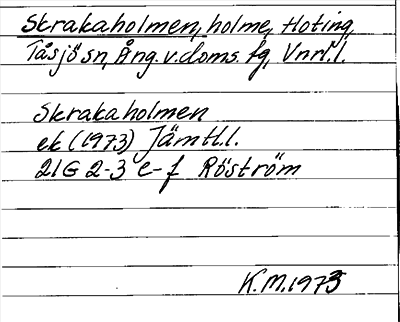 Skrakaholmen, holme, Hoting,
Tåsjö sn, Ång. v. doms. fg, Vnrl. l.
Skrakaholmen
ek (1973) Jämtl. l.
21G 2-3 e-f Röström
K.M. 1973